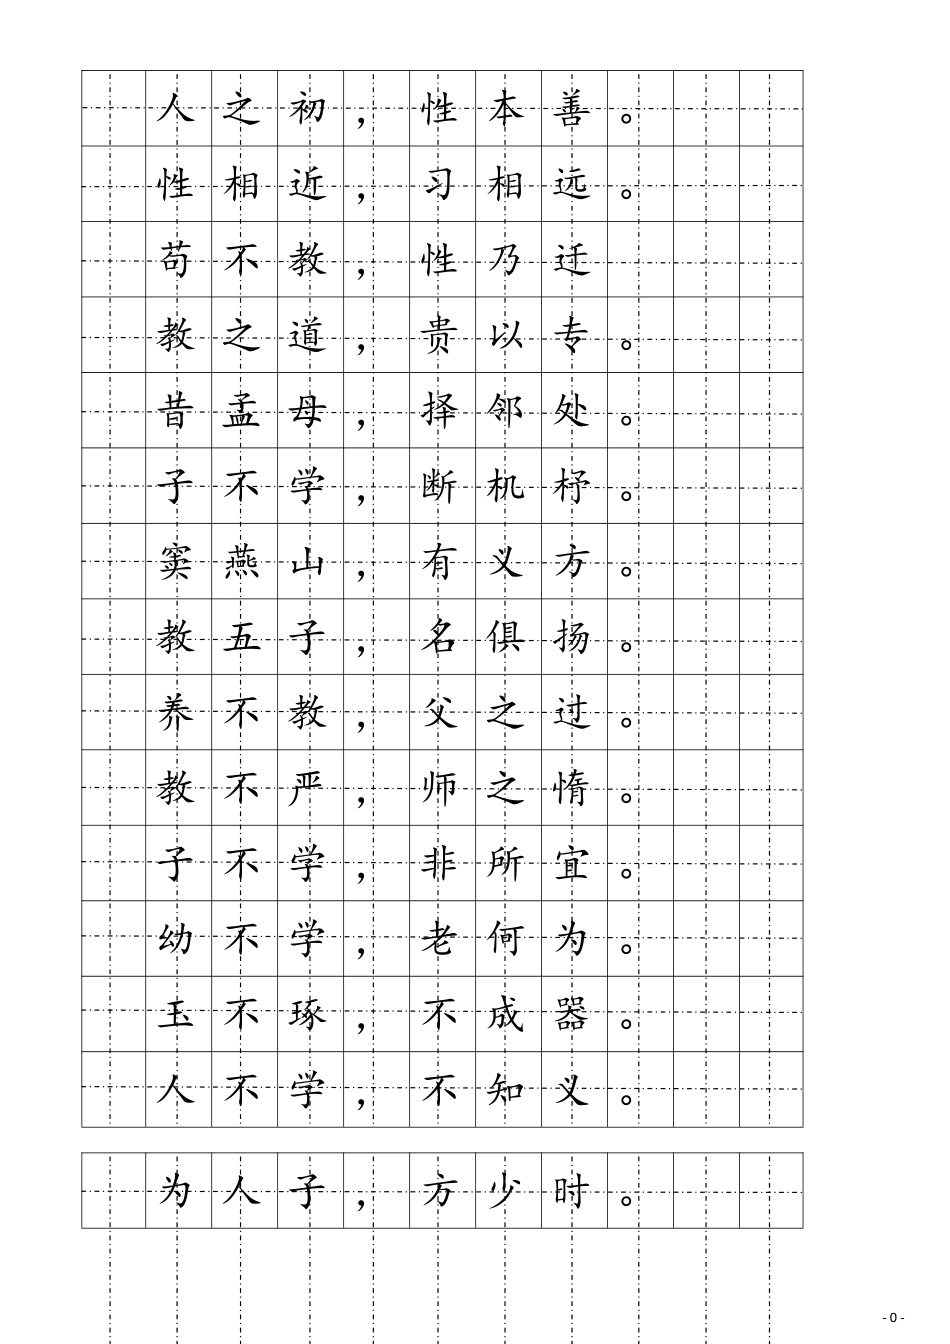 人之初，性本善。
性相近，习相远。
苟不教，性乃迁
教之道，贵以专。
昔孟母，择邻处。
子不学，断机杼。
窦燕山，有义方。
教五子，名俱扬。
养不教，父之过。
教不严，师之惰。
子不学，非所宜。
幼不学，老何为。
玉不琢，不成器。
人不学，不知义。
为人子，方少时。
- 0 -